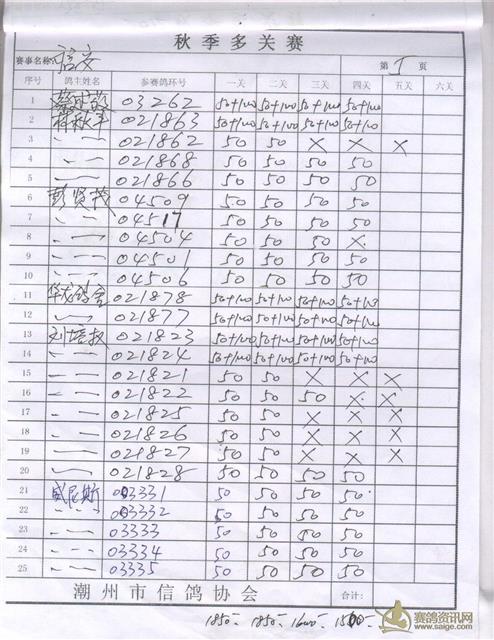 秋季多关赛
赛事名称: 信交 第 1 页
序号 鸽主姓名 参赛鸽环号 一关 二关 三关 四关 五关 六关
1 03262 50+100 50+100 50+100 50+100
2 021863 50+100 50+100 50+100 50+100
3 〃 021862 50 50 × × ×
4 〃 021868 50 50 50 50
5 〃 021866 50 50 50 50
6 彭贤茂 04509 50 50 50 50
7 〃 04517 50 50 50 50
8 〃 04504 50 50 50 ×
9 〃 04501 50 50 50 50
10 〃 04506 50 50 50 50
11 华龙鸽舍 021878 50+100 50+100 50+100 50+100
12 〃 021877 50+100 50+100 50+100 50+100
13 刘培权 021823 50+100 50+100 50+100 50+100
14 〃 021824 50+100 50+100 50+100 50+100
15 〃 021821 50 50 × × ×
16 〃 021822 50 50 50 × ×
17 〃 021825 50 50 × × ×
18 〃 021826 50 50 × × ×
19 〃 021827 50 50 × × ×
20 〃 021828 50 50 50 50
21 威尼斯 03331 50 50 50 50
22 〃 03332 50 50 50 50
23 〃 03333 50 50 50 50
24 〃 03334 50 50 50 50
25 〃 03335 50 50 50 50
潮州市信鸽协会 合计:
1850- 1850- 1600- 1500-
赛鸽资讯网
www.saige.com